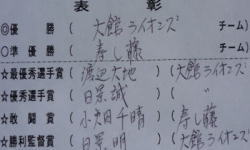 表 彰
◎優勝 ( 大館ライオンズ チーム)
○準優勝 ( 寿し藤 チーム)
☆最優秀選手賞 ( 渡辺大地 ) ( 大館ライオンズ
☆優秀選手賞 ( 日景誠 ) ( 〃
☆敢闘賞 ( 小矢田千晴 ) ( 寿し藤
☆勝利監督賞 ( 日景明 ) ( 大館ライオンズ